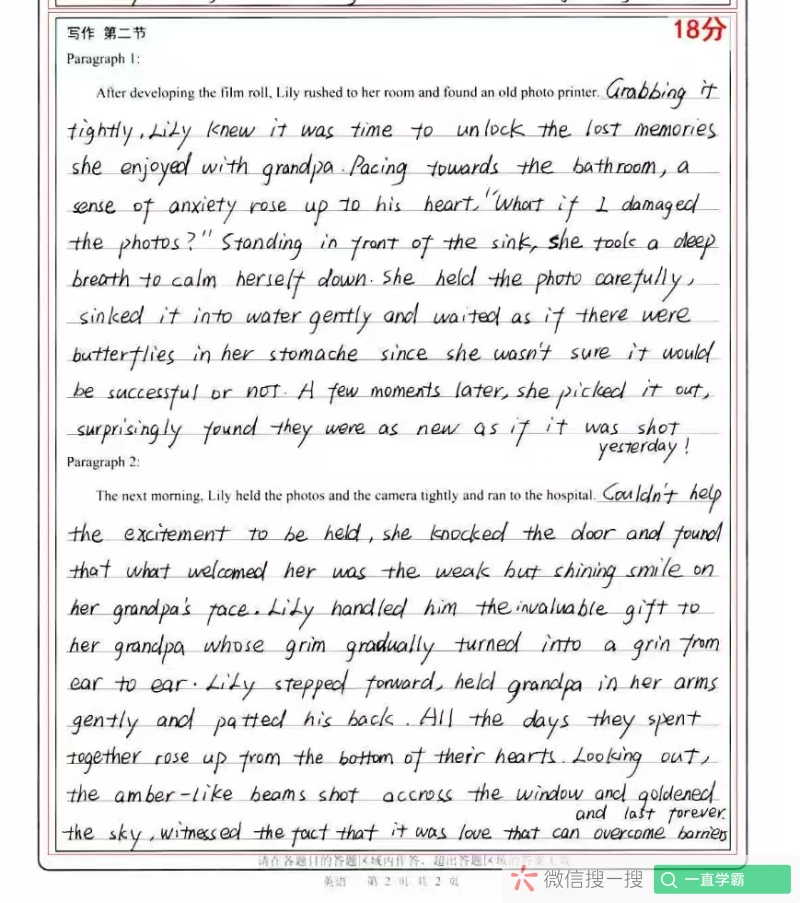 写作 第二节
18分
Paragraph 1:
After developing the film roll, Lily rushed to her room and found an old photo printer. Grabbing it
tightly, LiLy knew it was time to unlock the lost memories
she enjoyed with grandpa. Pacing towards the bathroom, a
sense of anxiety rose up to his heart, "What if I damaged
the photos?" Standing in front of the sink, she took a deep
breath to calm herself down. She held the photo carefully,
sinked it into water gently and waited as if there were
butterflies in her stomache since she wasn't sure it would
be successful or not. A few moments later, she picked it out,
surprisingly found they were as new as if it was shot
yesterday!
Paragraph 2:
The next morning, Lily held the photos and the camera tightly and ran to the hospital. Couldn't help
the excitement to be held, she knocked the door and found
that what welcomed her was the weak but shining smile on
her grandpa's face. LiLy handled him the invaluable gift to
her grandpa whose grim gradually turned into a grin from
ear to ear. LiLy stepped forward, held grandpa in her arms
gently and patted his back. All the days they spent
together rose up from the bottom of their hearts. Looking out,
the amber-like beams shot accross the window and goldened
the sky, witnessed the fact that it was love that can overcome barriers
and last forever.
请在各题目的答题区域内作答，超出答题区域的答案无效
英语 第 2 页 共 2 页
微信搜一搜
一直学霸